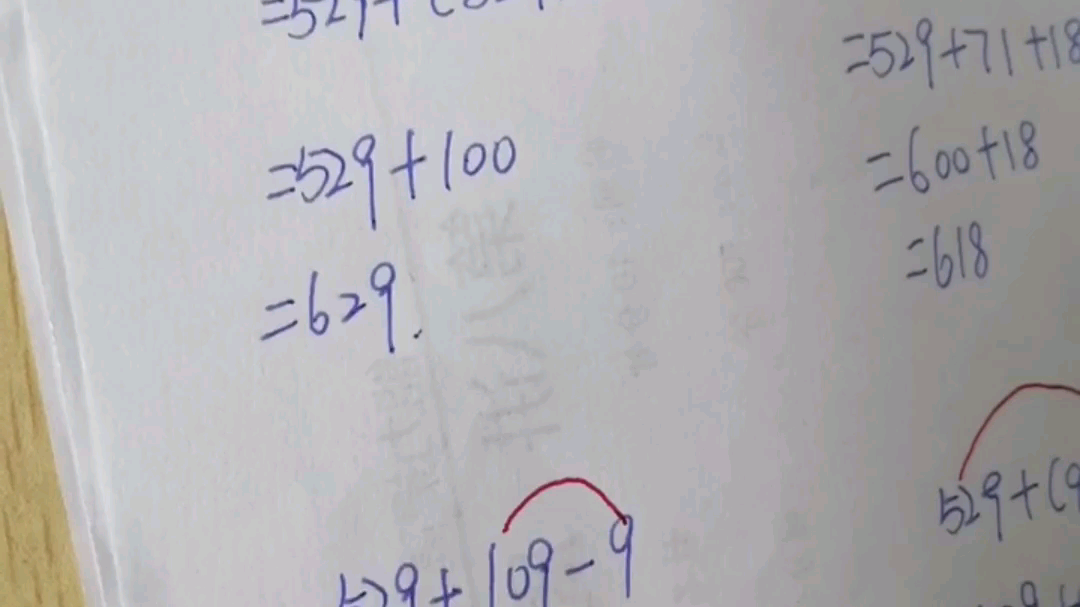 =529+
=529+100
=629.
529+109-9
=529+71+18
=600+18
=618
529+(9